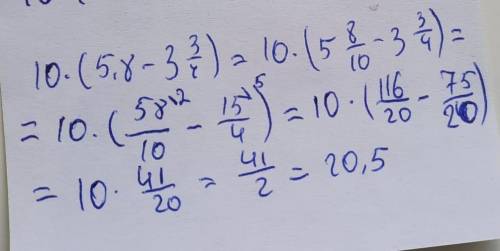 10·(5,8 - 3 3/4) = 10·(5 8/10 - 3 3/4) =
= 10·(58\2/10 - 15\5/4) = 10·(116/20 - 75/20)
= 10· 41/20 = 41/2 = 20,5